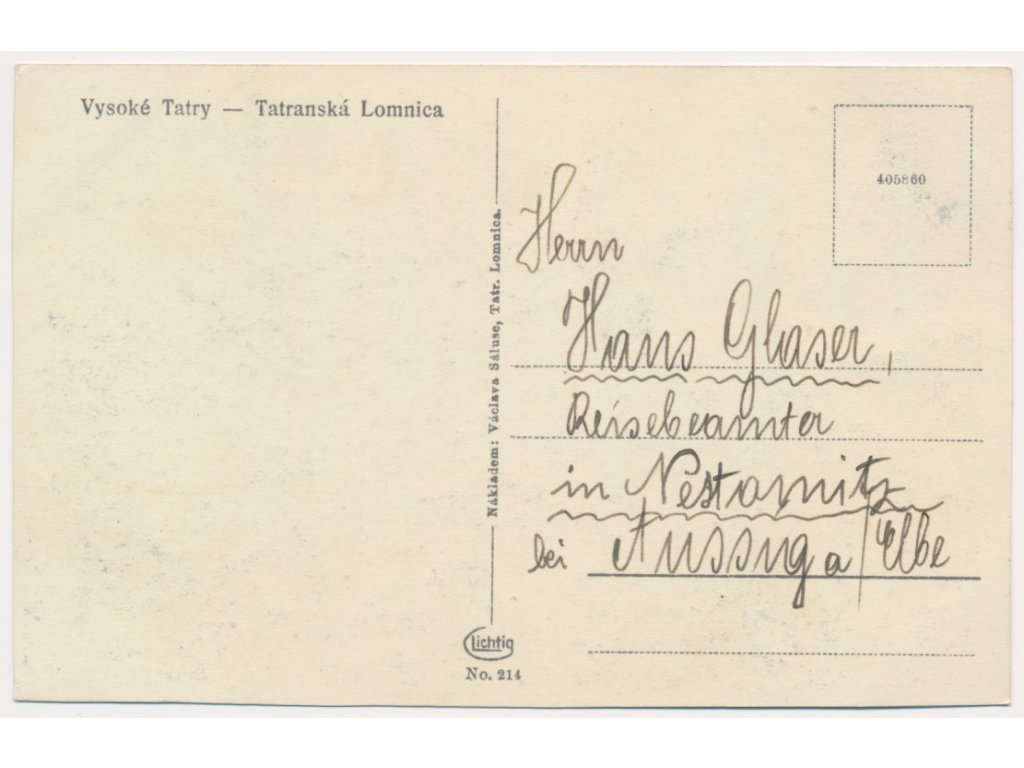 Vysoké Tatry — Tatranská Lomnica
405860
Nákladem: Václava Sáluse, Tatr. Lomnica.
Herrn
Hans Glaser,
Reisebeamter
in Nestomitz
bei Aussig a/Elbe
Lichtig
No. 214